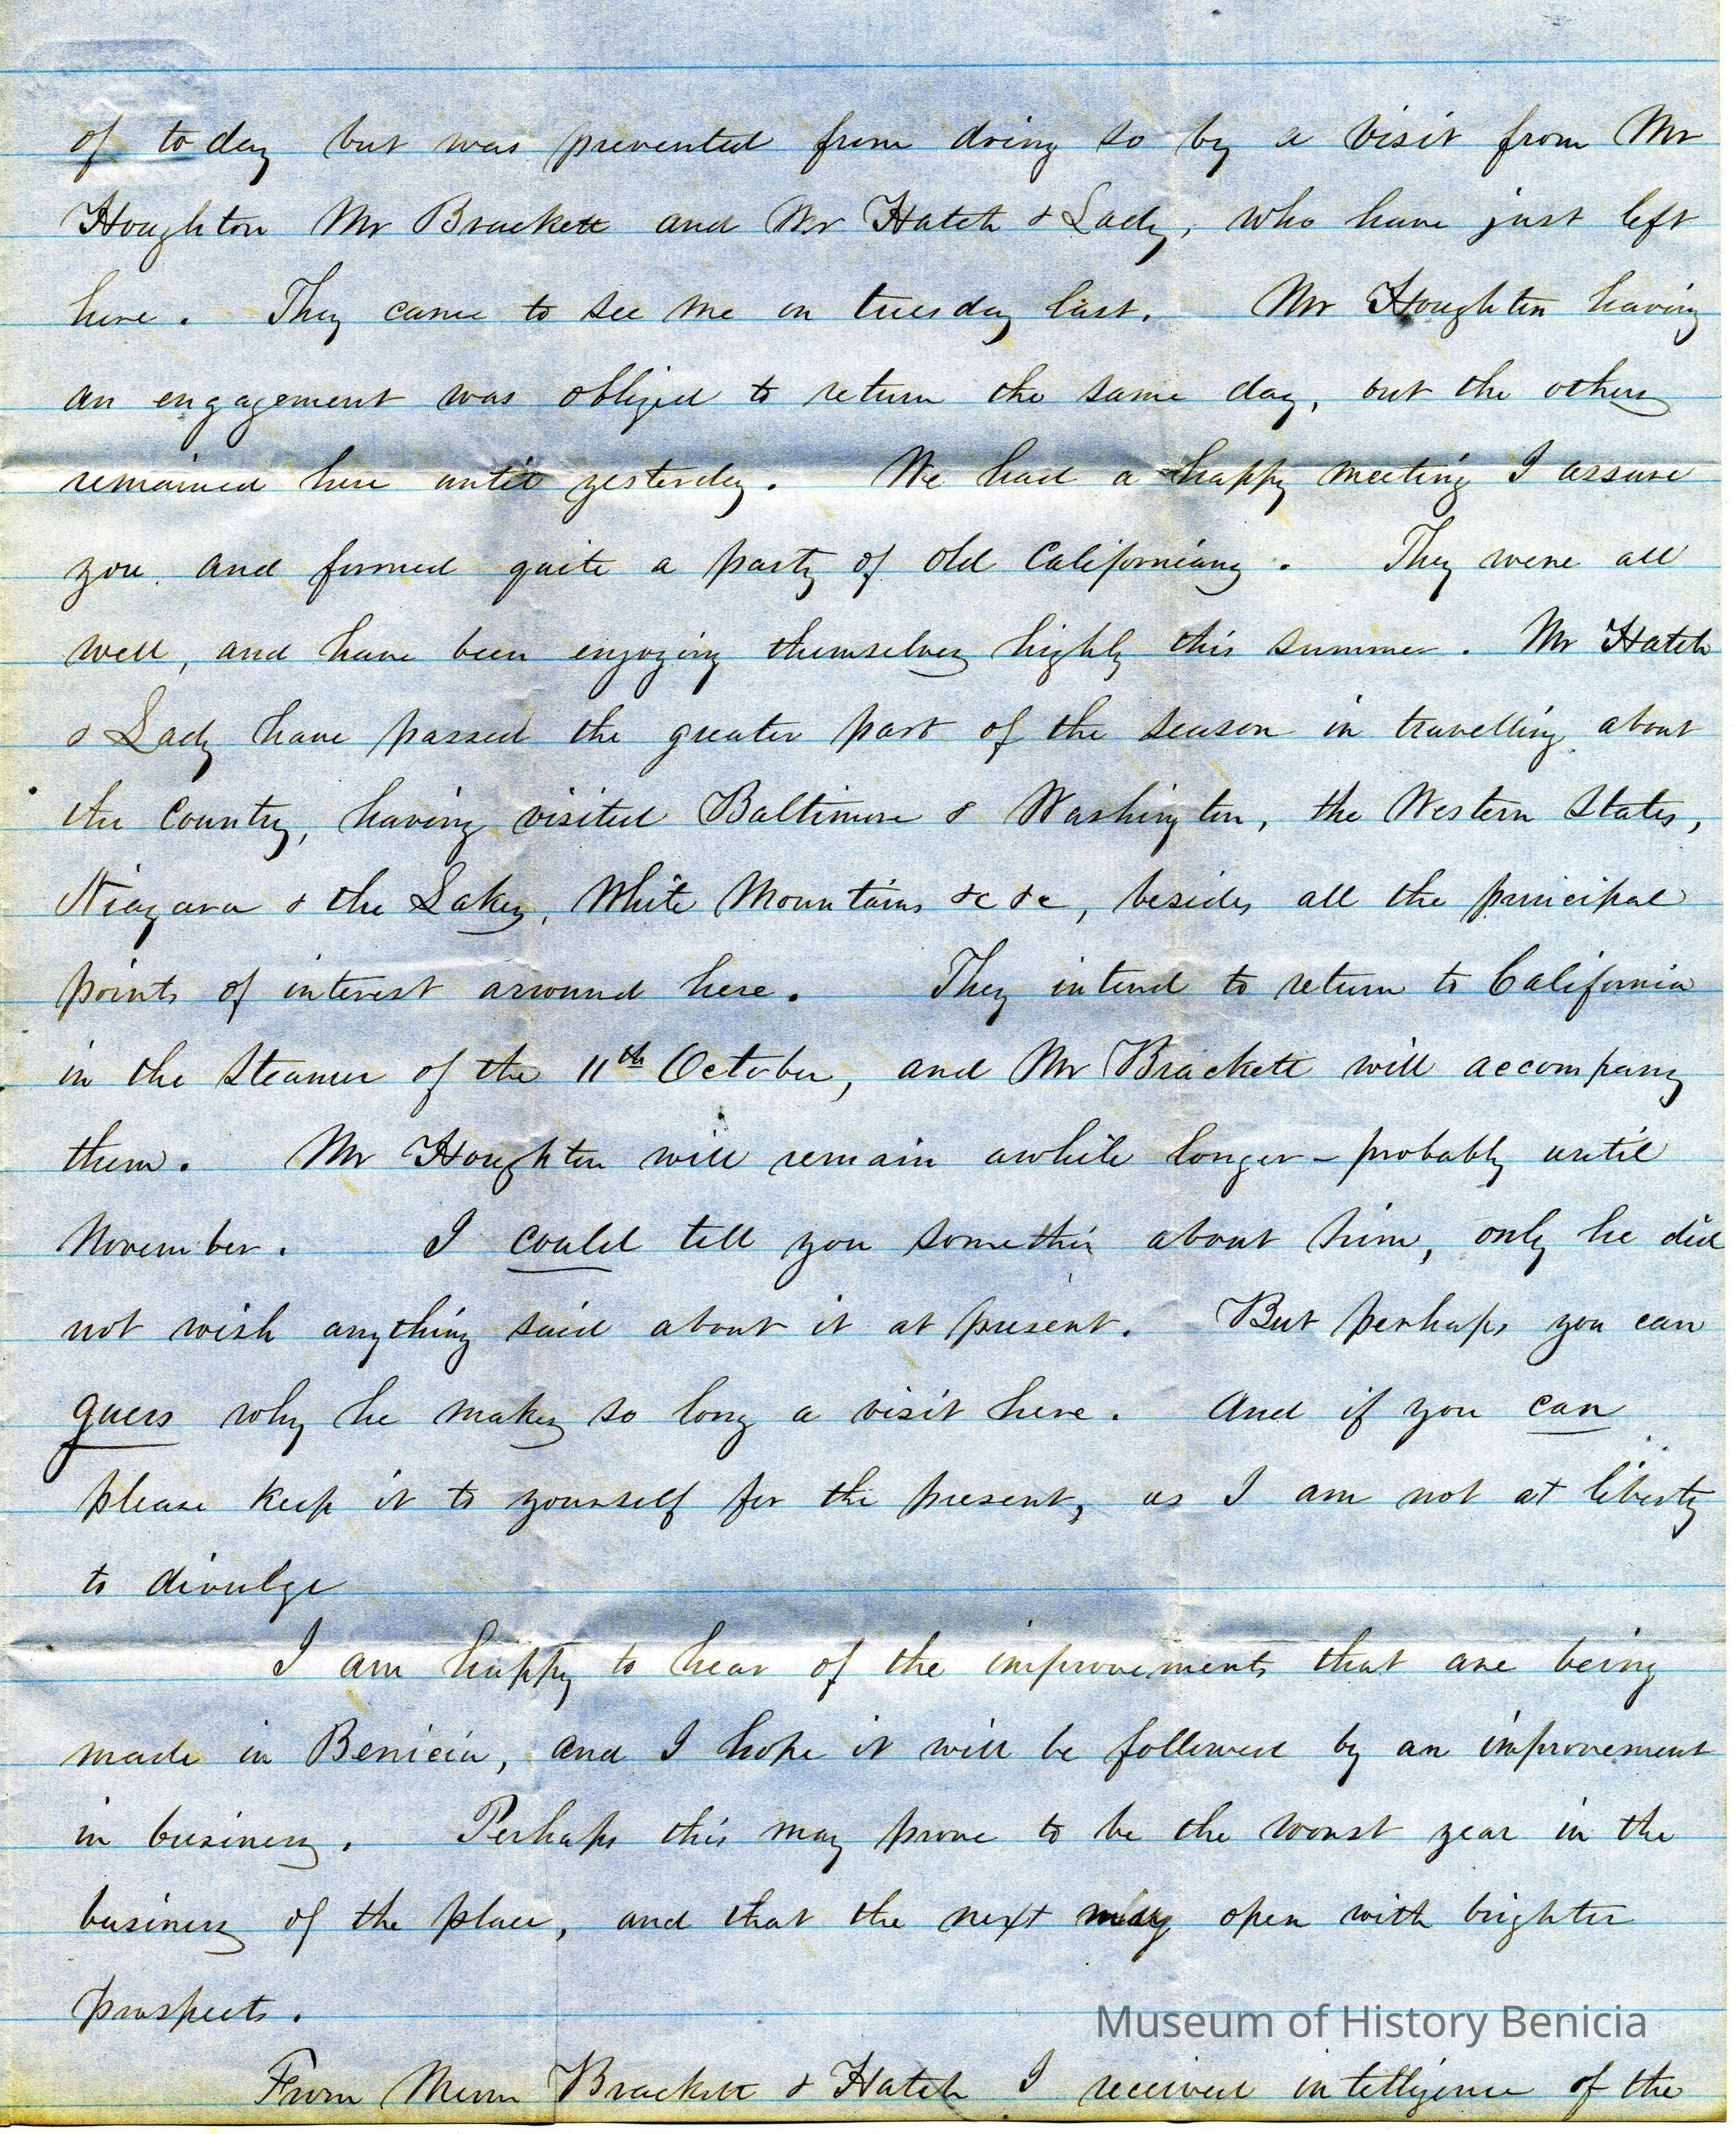 of to day but was prevented from doing so by a visit from Mr
Houghton Mr Brackett and Mr Hatch & Lady, who have just left
here. They came to see me on tuesday last. Mr Houghton having
an engagement was obliged to return the same day, but the others
remained here until yesterday. We had a happy meeting I assure
you and formed quite a party of old Californians. They were all
well, and have been enjoying themselves highly this summer. Mr Hatch
& Lady have passed the greater part of the season in travelling about
the country, having visited Baltimore & Washington, the Western States,
Niagara & the Lakes, White Mountains &c &c, besides all the principal
points of interest arround here. They intend to return to California
in the Steamer of the 11th October, and Mr Brackett will accompany
them. Mr Houghton will remain awhile longer - probably until
November. I could tell you somethin about him, only he did
not wish anything said about it at present. But perhaps you can
guess why he makes so long a visit here. And if you can
please keep it to yourself for the present, as I am not at liberty
to divulge
I am happy to hear of the improvements that are being
made in Benicia, and I hope it will be followed by an improvement
in business. Perhaps this may prove to be the worst year in the
business of the place, and that the next may open with brighter
prospects.
Museum of History Benicia
From Messrs Brackett & Hatch I received intelligence of the